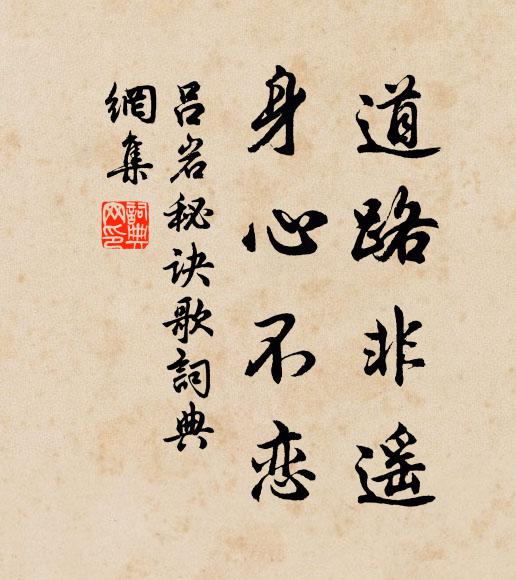 道路非遥
身心不恋
吕岩秘诀歌詞典
網集
詞典
网印